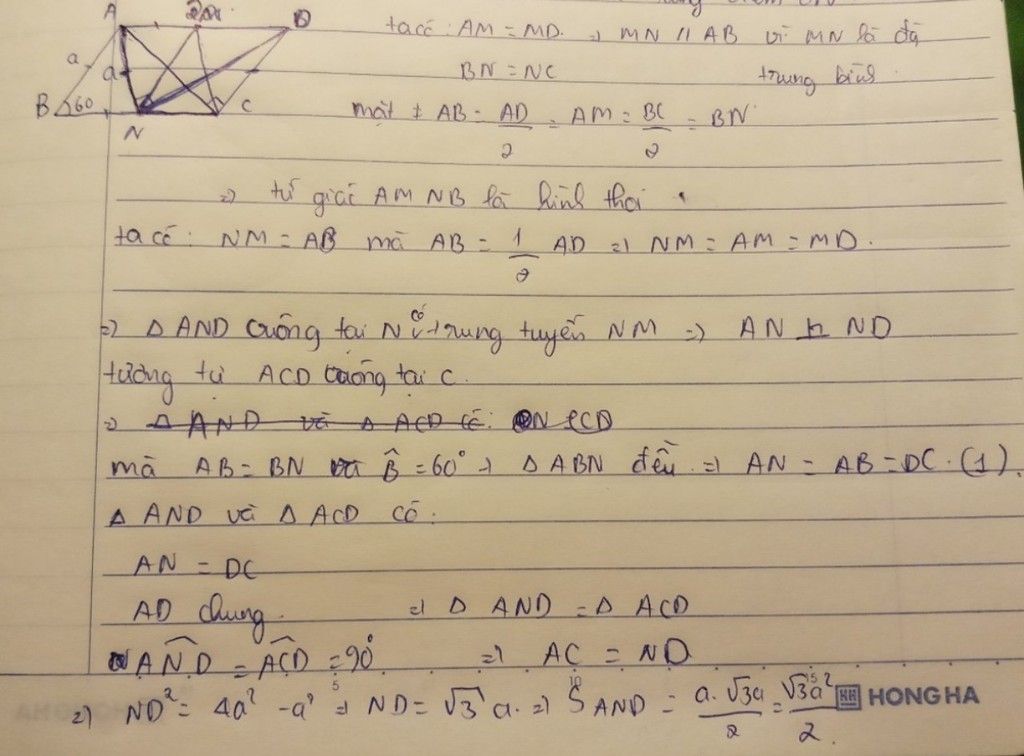 A D
a
a
B 60 C
N
ta có: AM = MD. ⇒ MN // AB vì MN là đg
BN = NC trung bình.
mặt ≠ AB = AD/2 = AM = BC/2 = BN
⇒ tứ giác AMNB là hình thoi
ta có: NM = AB mà AB = 1/2 AD ⇒ NM = AM = MD.
⇒ Δ AND vuông tại N có trung tuyến NM ⇒ AN ⊥ ND
tương tự ACD vuông tại C.
⇒ Δ AND và Δ ACD có:
mà AB = BN và B̂ = 60° ⇒ Δ ABN đều ⇒ AN = AB = DC. (1).
Δ AND và Δ ACD có:
AN = DC
AD chung. ⇒ Δ AND = Δ ACD
AND̂ = ACD̂ = 90° ⇒ AC = ND
5 10 15
⇒ ND² = 4a² - a² ⇒ ND = √3 a. ⇒ S AND = a.√3a/2 = √3a²/2
HH HONG HA